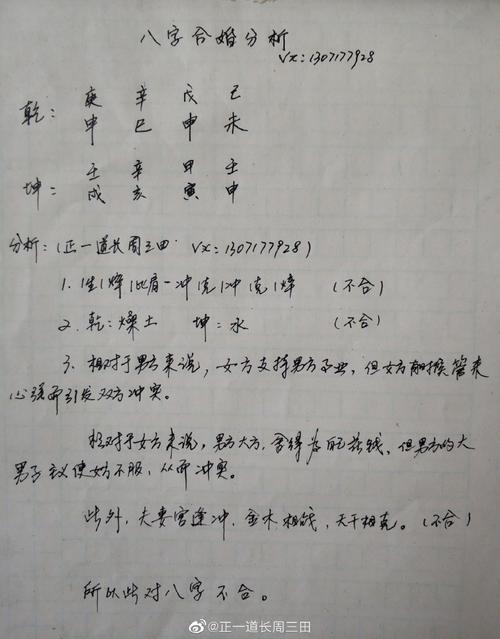 八字合婚分析
VX:1307177928
乾: 庚 辛 戊 己
申 巳 申 未
坤: 壬 辛 甲 壬
戌 亥 寅 申
分析:(正一道长周三田 VX:1307177928)
1. 冲 克 冲 克 (不合)
2. 乾:燥土 坤:水 (不合)
3. 相对于男方来说,女方支持男方事业,但女方 管束
心强而引发双方冲突。
相对于女方来说,男方大方,舍得为 花钱,但男方的大
男子主义使女方不服,从而冲突。
此外,夫妻宫逢冲,金木相战,天干相克。(不合)
所以此对八字不合。
@正一道长周三田